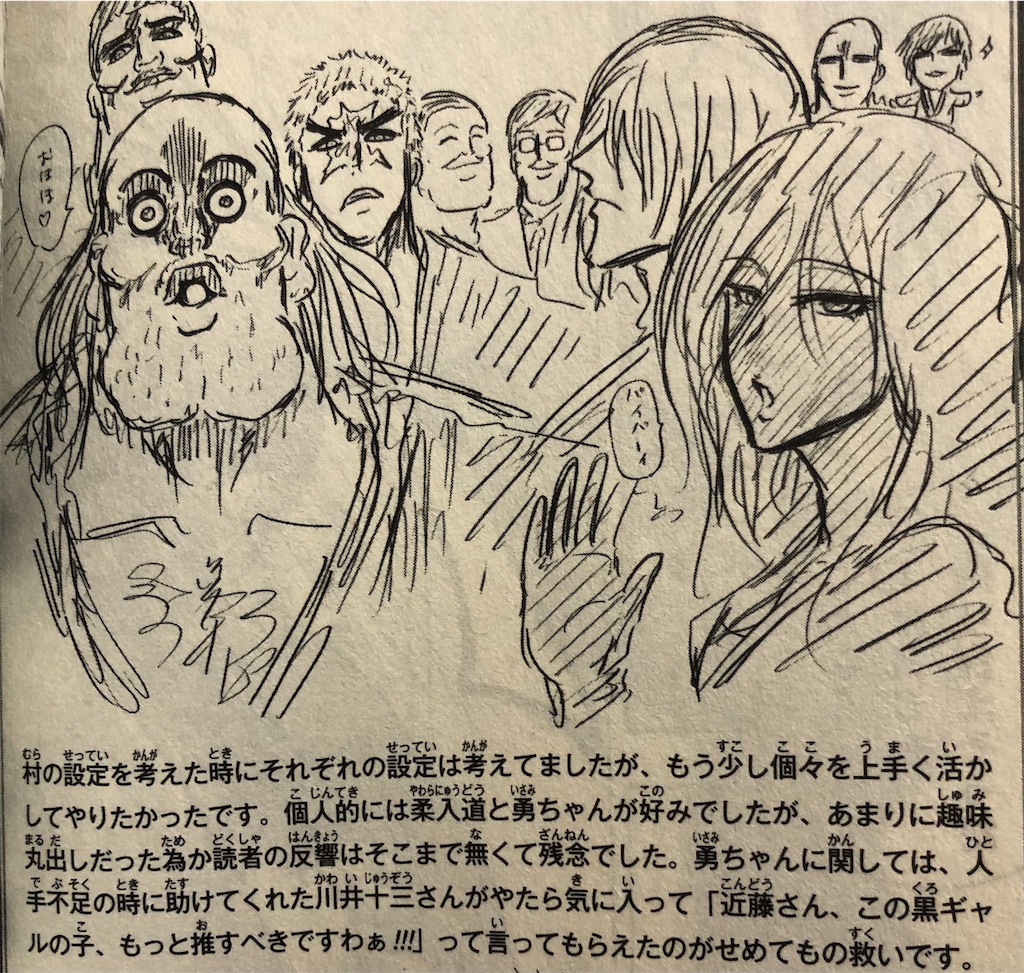 おほほ♡
バイバーイ
村の設定を考えた時にそれぞれの設定は考えてましたが、もう少し個々を上手く活か
してやりたかったです。個人的には柔入道と勇ちゃんが好みでしたが、あまりに趣味
丸出しだった為か読者の反響はそこまで無くて残念でした。勇ちゃんに関しては、人
手不足の時に助けてくれた川井十三さんがやたら気に入って「近藤さん、この黒ギャ
ルの子、もっと推すべきですわぁ!!!」って言ってもらえたのがせめてもの救いです。